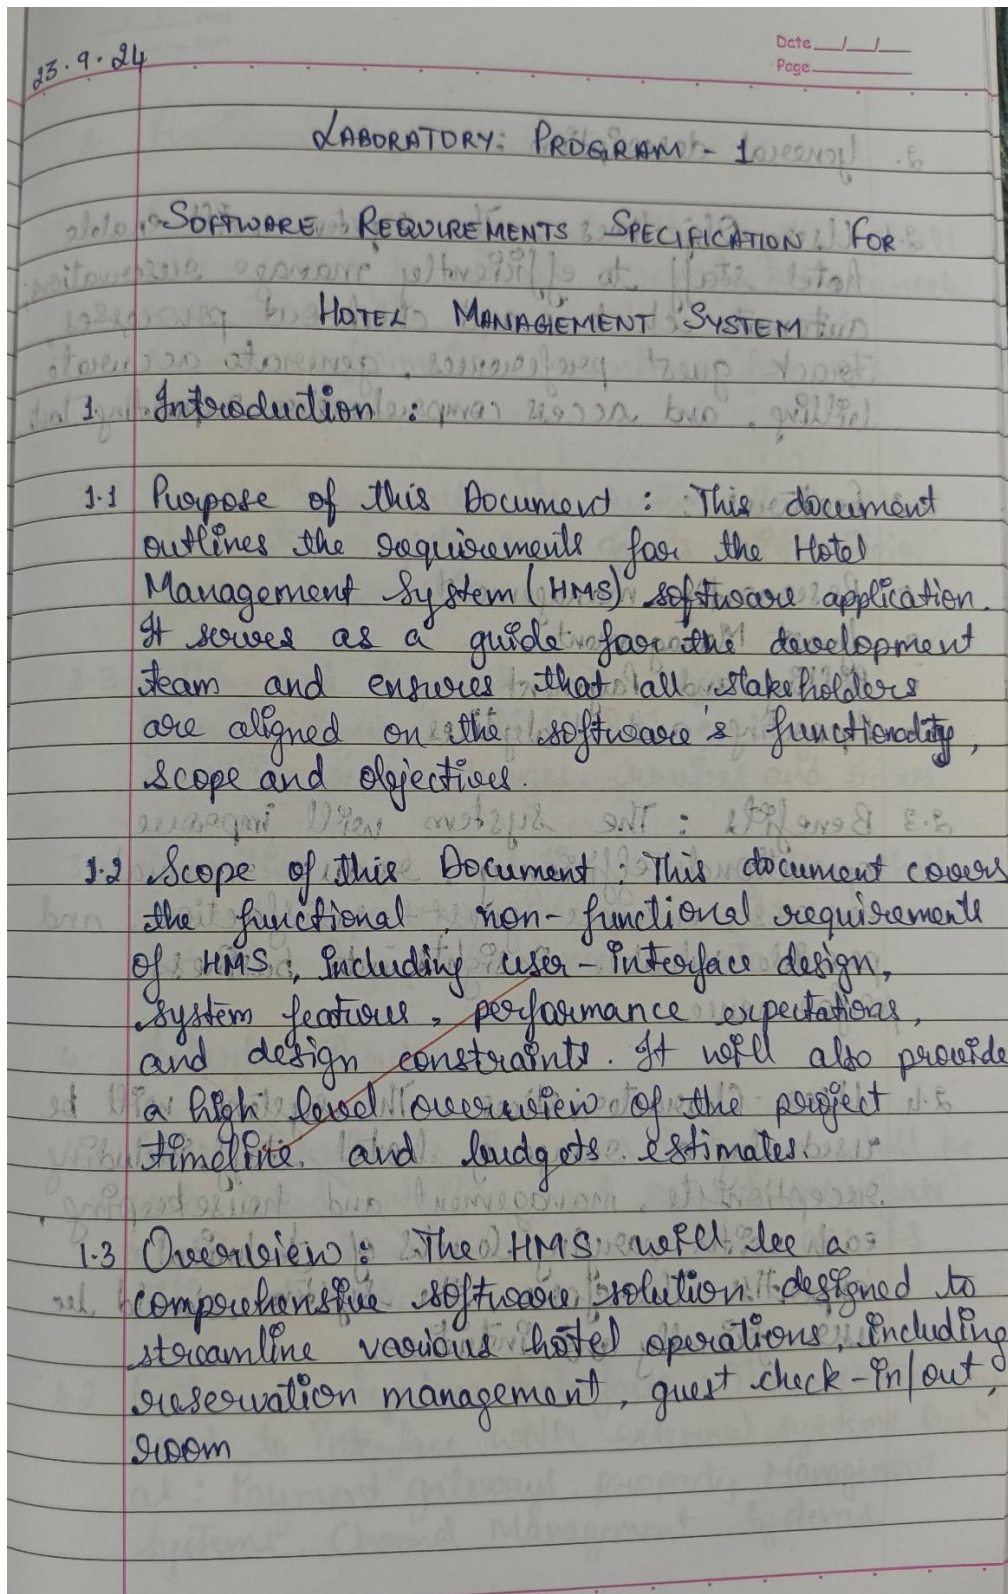 23.9.24
Date__/__/__
Page______
LABORATORY: PROGRAM - 1
SOFTWARE REQUIREMENTS SPECIFICATION FOR
HOTEL MANAGEMENT SYSTEM
1. Introduction :
1.1 Purpose of this Document : This document
outlines the requirements for the Hotel
Management System (HMS) software application.
It serves as a guide for the development
team and ensures that all stakeholders
are aligned on the software's functionality,
scope and objectives.
1.2 Scope of this Document : This document covers
the functional, non-functional requirements
of HMS, including user-interface design,
system features, performance expectations,
and design constraints. It will also provide
a high level overview of the project
timeline and budgets estimates.
1.3 Overview : The HMS will be a
comprehensive software solution designed to
streamline various hotel operations, including
reservation management, guest check-in/out,
room